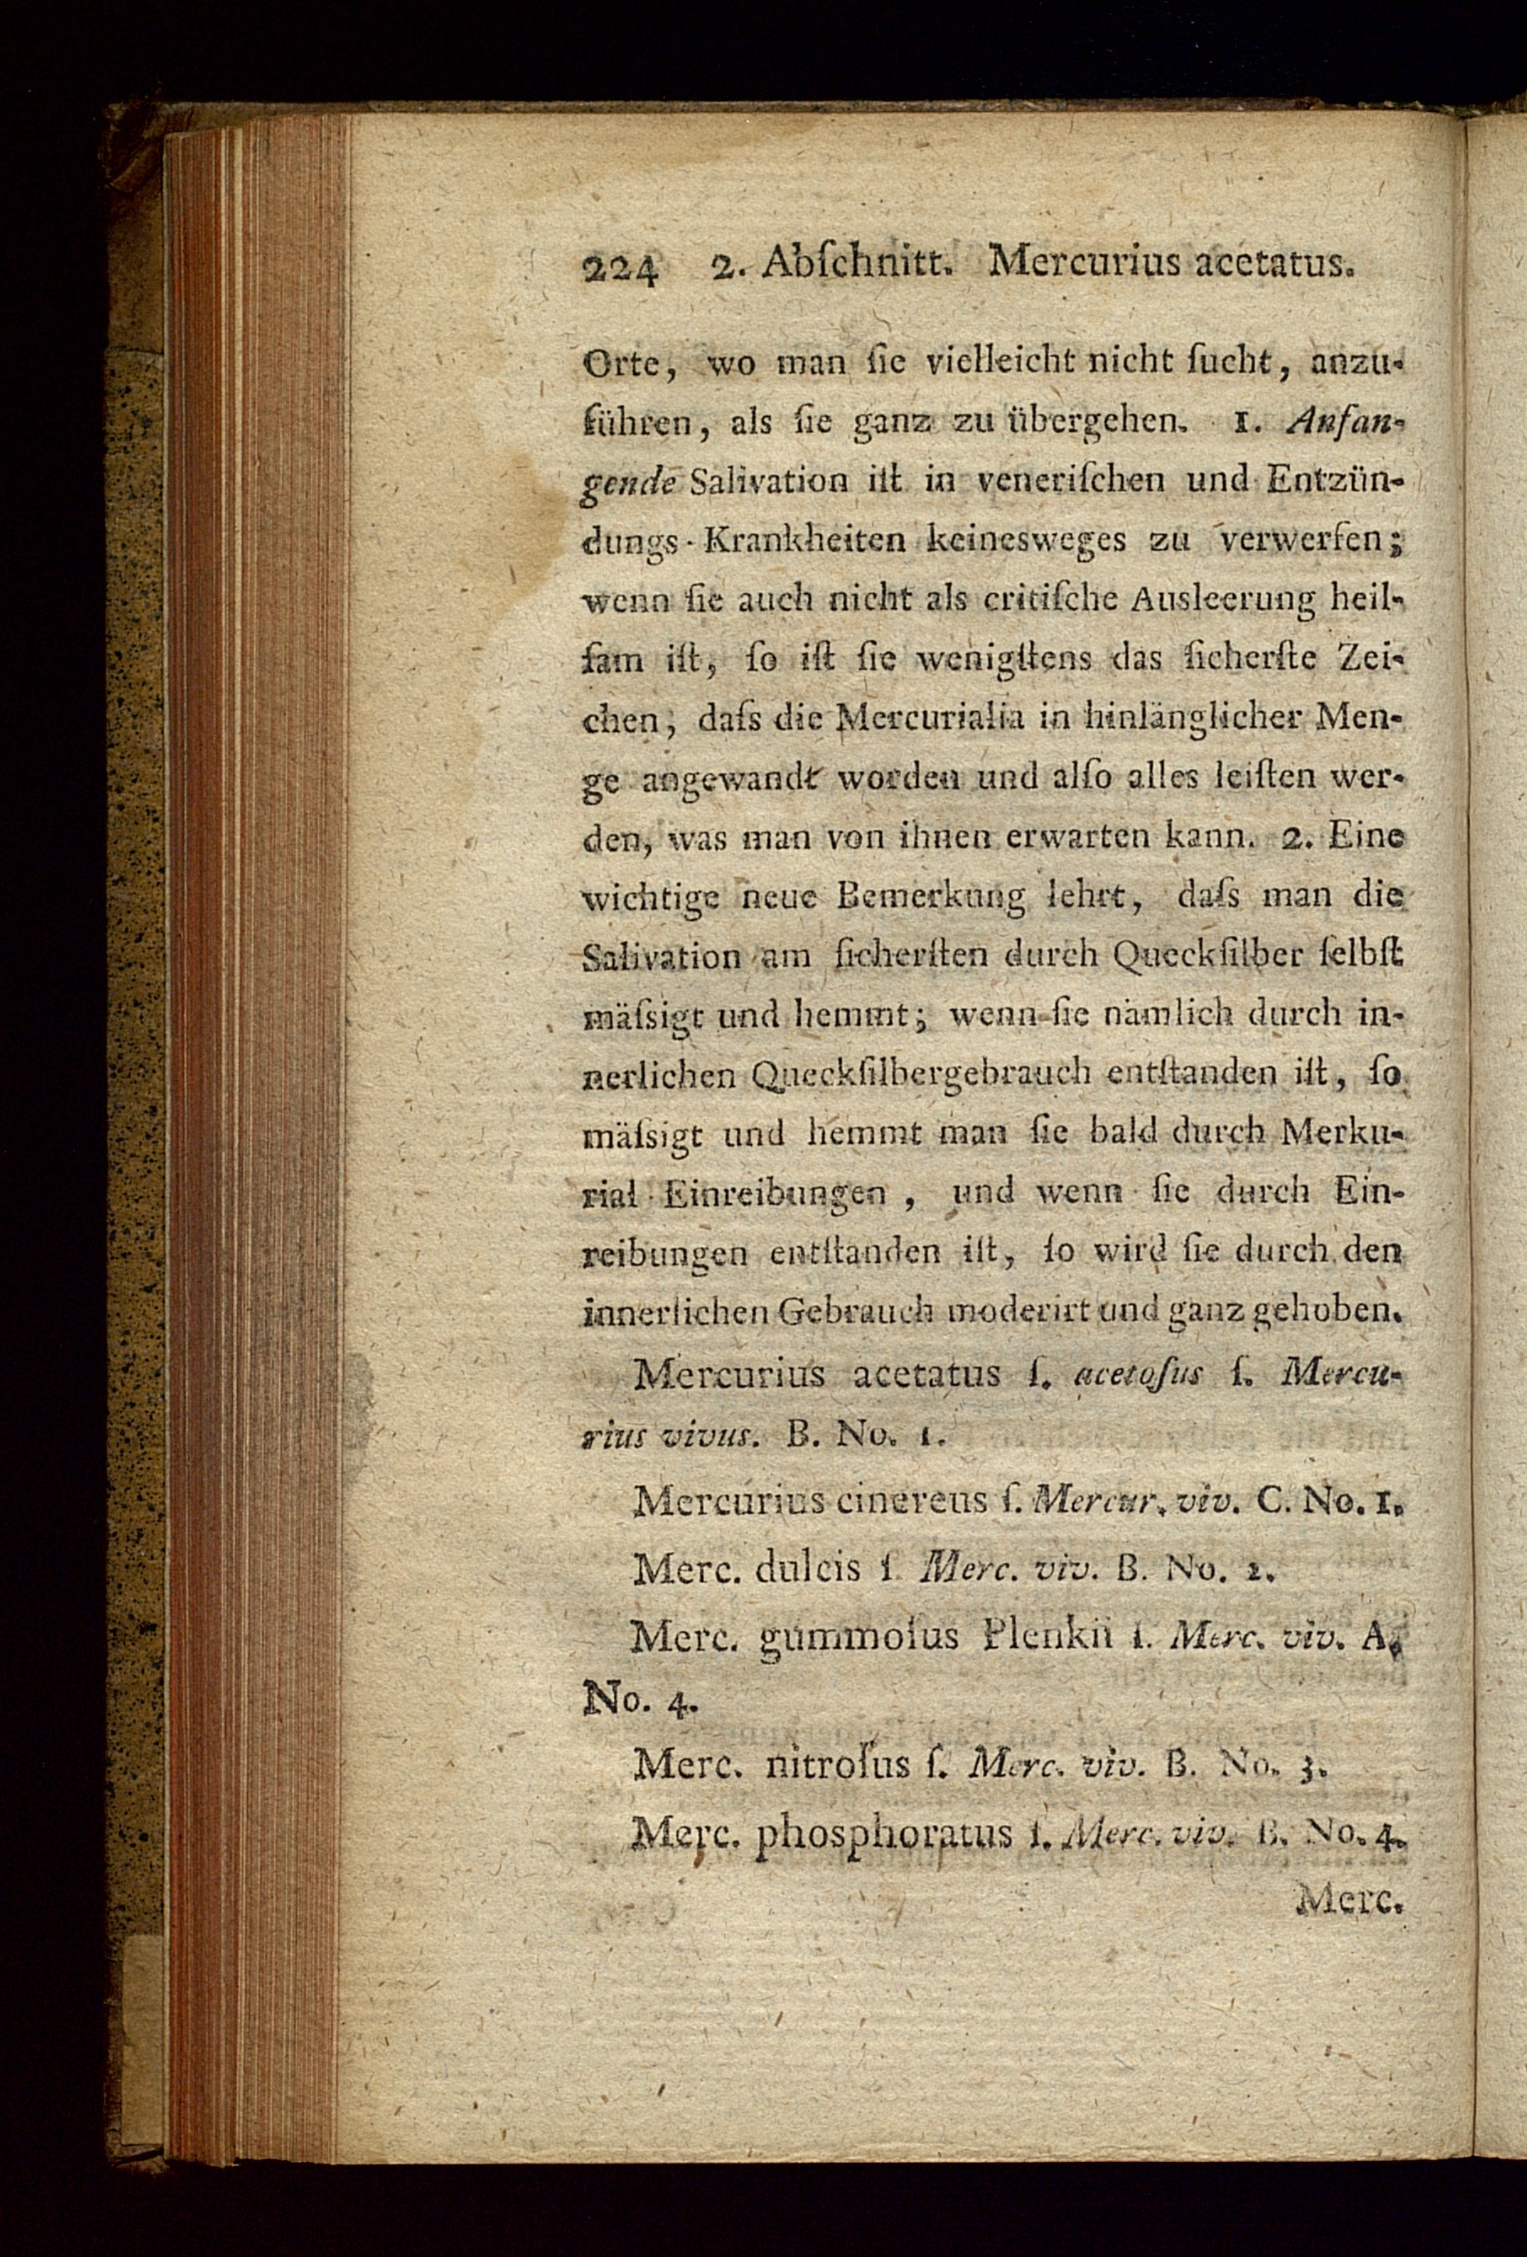 224 2. Abſchnitt. Mercurius acetatus.
Orte, wo man ſie vielleicht nicht ſucht, anzu-
führen, als ſie ganz zu übergehen. 1. Anfan-
gende Salivation iſt in veneriſchen und Entzün-
dungs-Krankheiten keinesweges zu verwerfen;
wenn ſie auch nicht als critiſche Ausleerung heil-
ſam iſt, ſo iſt ſie wenigſtens das ſicherſte Zei-
chen, daſs die Mercurialia in hinlänglicher Men-
ge angewandt worden und alſo alles leiſten wer-
den, was man von ihnen erwarten kann. 2. Eine
wichtige neue Bemerkung lehrt, daſs man die
Salivation am ſicherſten durch Queckſilber ſelbſt
mäſsigt und hemmt; wenn ſie nämlich durch in-
nerlichen Queckſilbergebrauch entſtanden iſt, ſo
mäſsigt und hemmt man ſie bald durch Merku-
rial-Einreibungen, und wenn ſie durch Ein-
reibungen entſtanden iſt, ſo wird ſie durch den
innerlichen Gebrauch moderirt und ganz gehoben.
Mercurius acetatus ſ. acetoſus ſ. Mercu-
rius vivus. B. No. 1.
Mercurius cinereus ſ. Mercur. viv. C. No. 1.
Merc. dulcis ſ Merc. viv. B. No. 2.
Merc. gummoſus Plenkii ſ. Merc. viv. A.
No. 4.
Merc. nitroſus ſ. Merc. viv. B. No. 3.
Merc. phosphoratus ſ. Merc. viv. B. No. 4.
Merc.